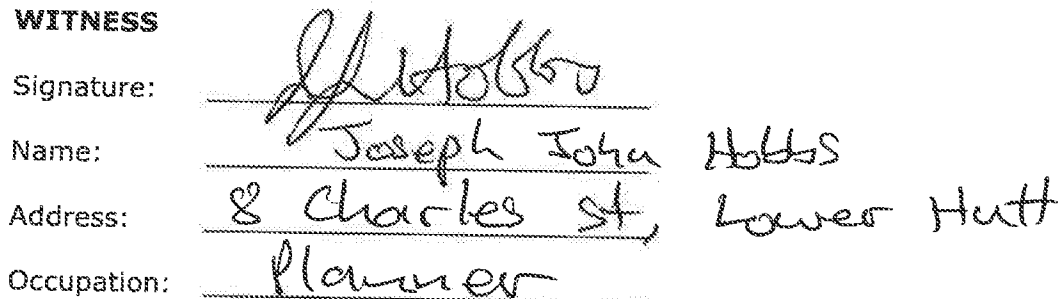 WITNESS
Signature: JJ Hobbs
Name: Joseph John Hobbs
Address: 8 Charles St, Lower Hutt
Occupation: Planner